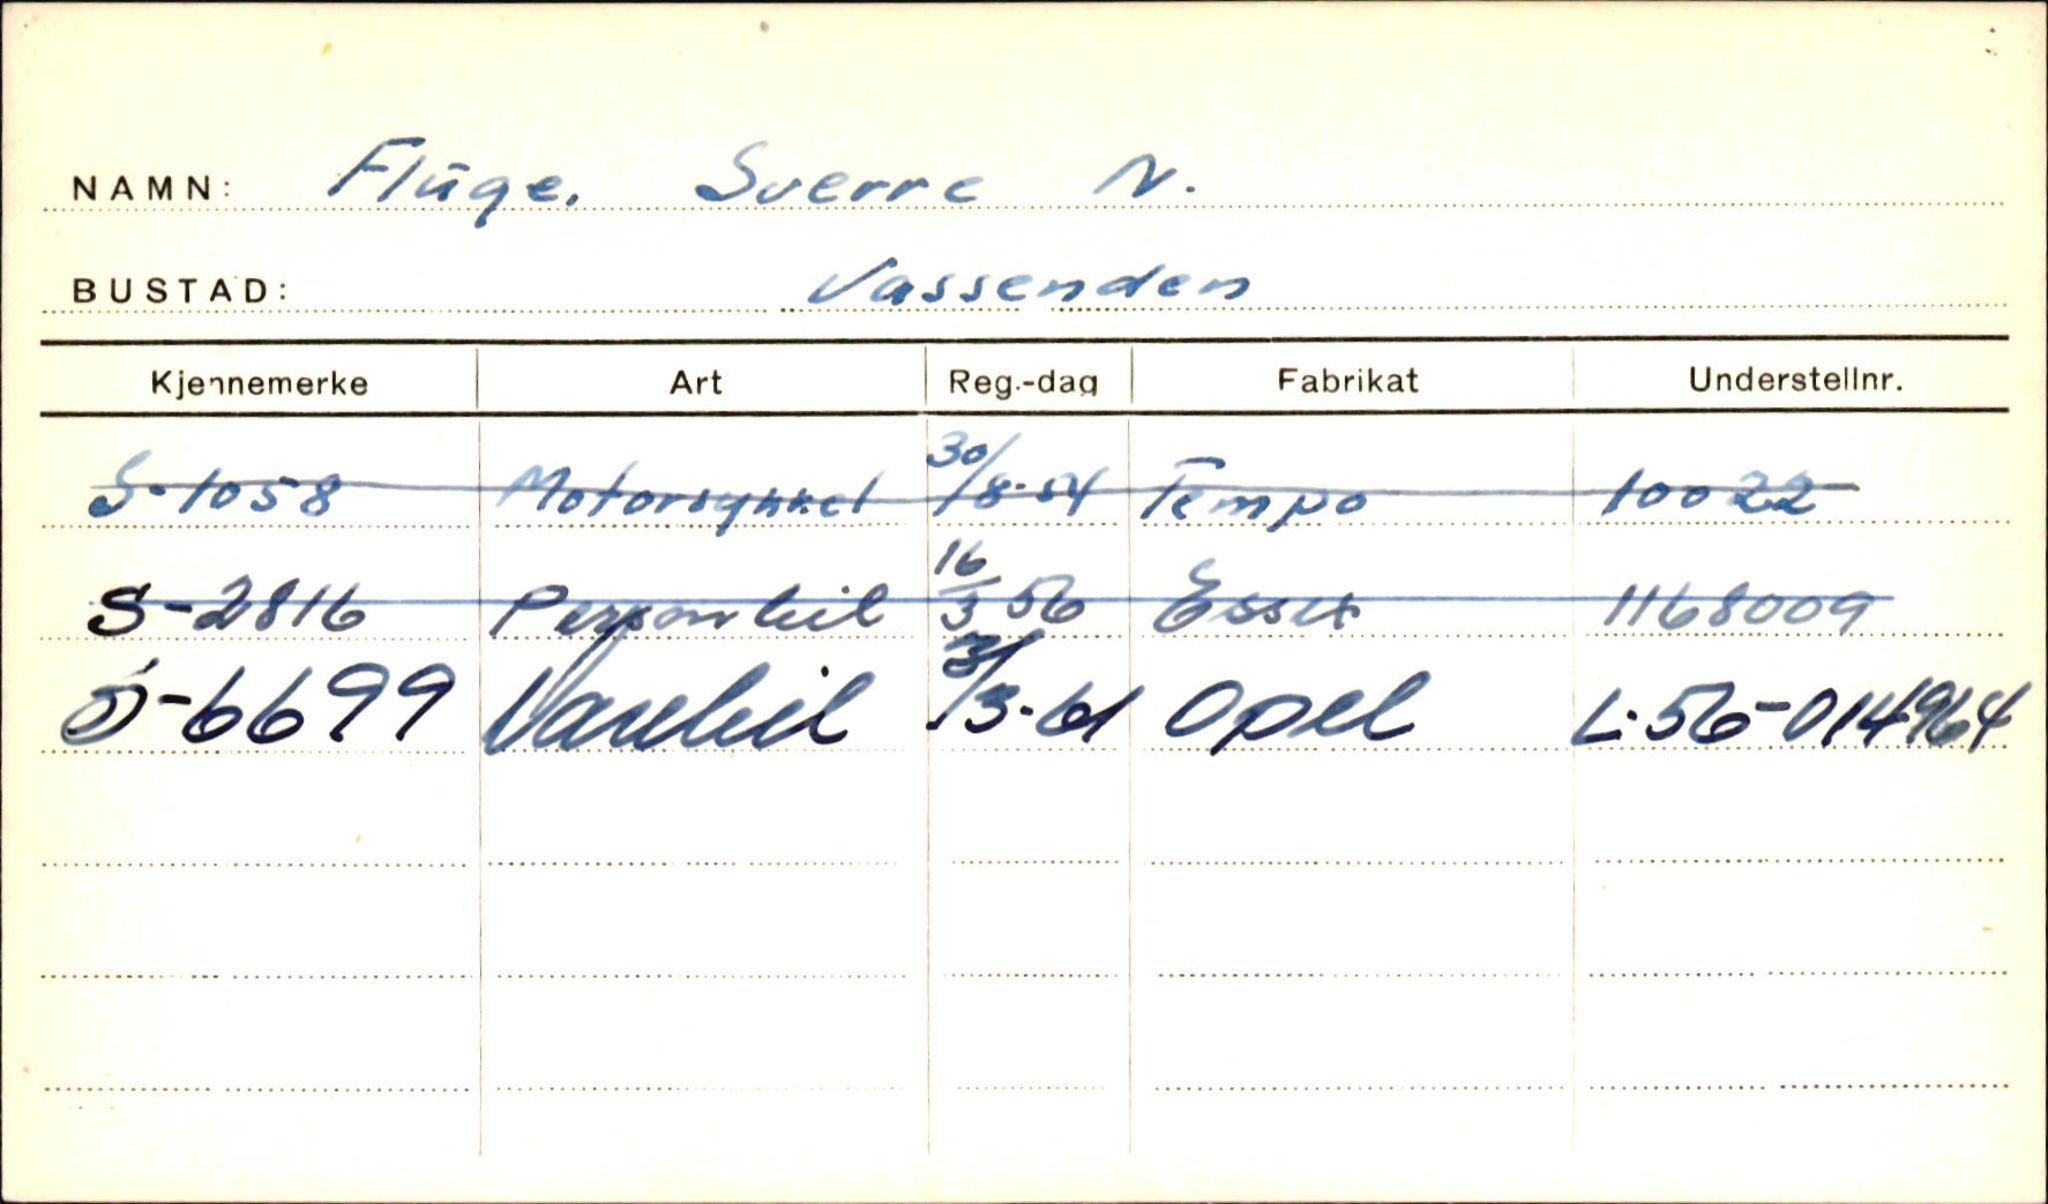 NAMN: Fluge, Sverre N.
BUSTAD: Vassenden
Kjennemerke Art Reg.-dag Fabrikat Understellnr.
S-1058 Motorsykkel 30/8-54 Tempo 10022
S-2816 Personbil 16/3 56 Essex 1168009
S-6699 Varebil /3-61 Opel L-56-014964